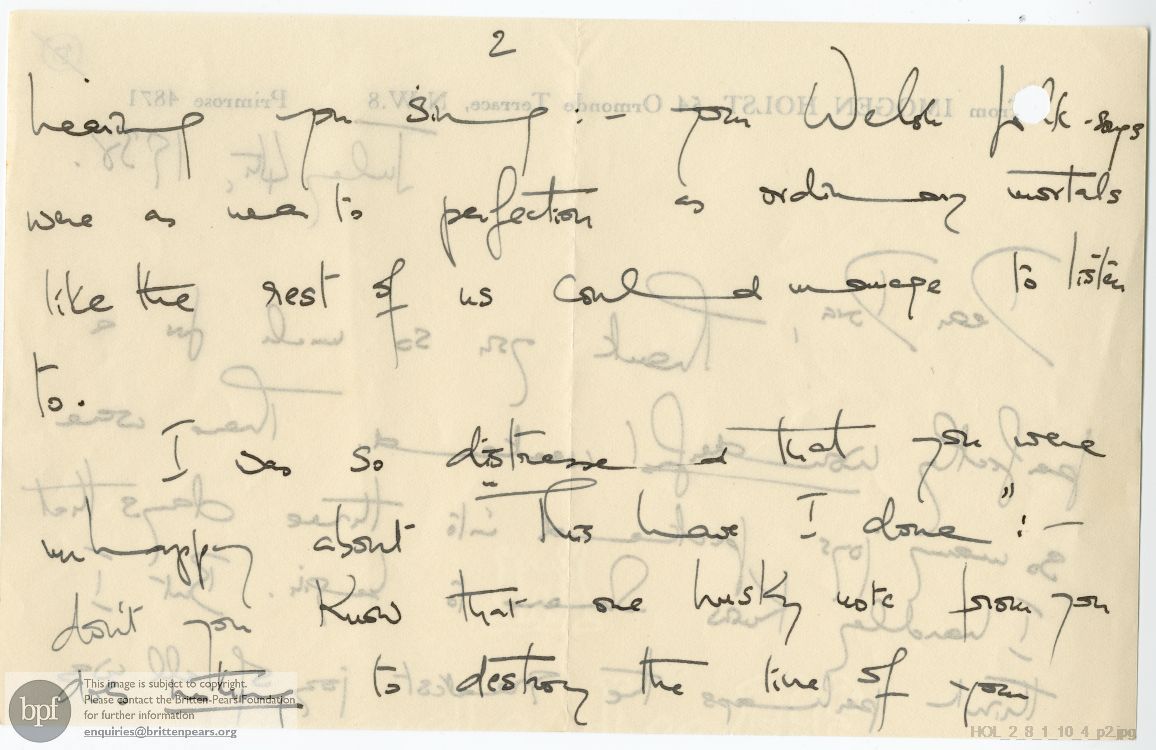 2
hearing you sing :- your Welsh folk-songs
were as near to perfection as ordinary mortals
like the rest of us could manage to listen
to.
I was so distressed that you were
unhappy about "This have I done" :-
don't you know that one husky note from you
does nothing to destroy the line of your
bpf
This image is subject to copyright.
Please contact the Britten-Pears Foundation
for further information
enquiries@brittenpears.org
HOL_2_8_1_10_4_p2.jpg
From IMOGEN HOLST, 54 Ormonde Terrace, N.W.8 Primrose 4871
July 4th, 1938.
Dear Dora,
Thank you so much for a
perfectly wonderful weekend.